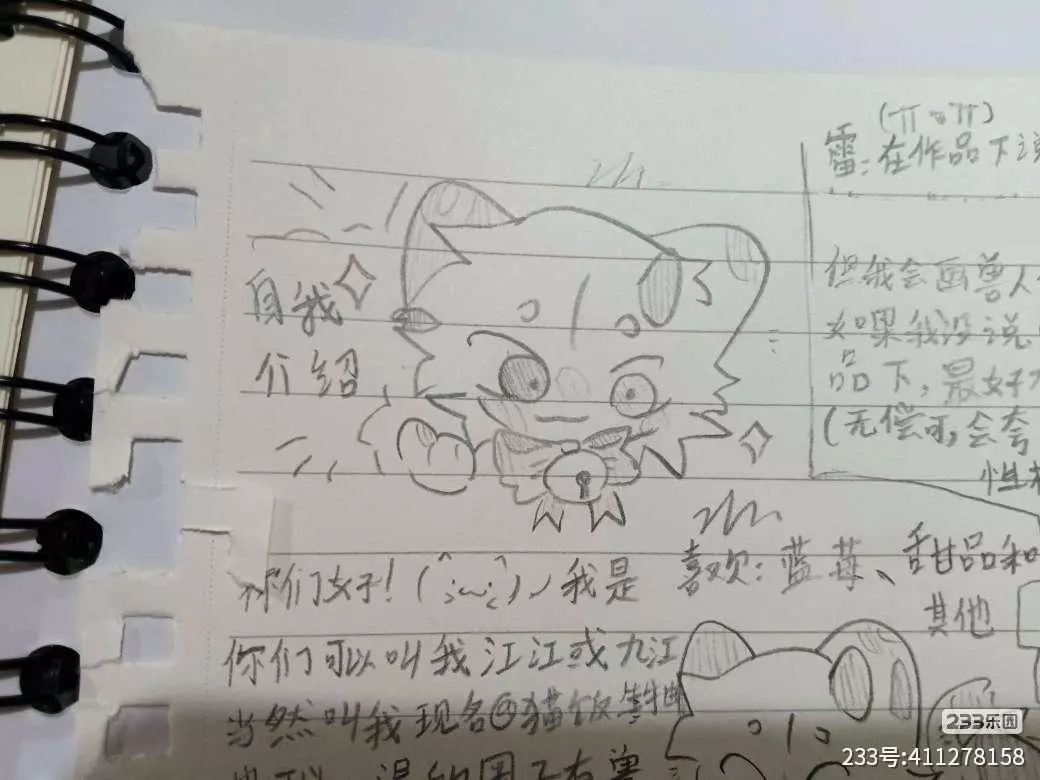 (π π)
雷:在作品下说
自我
介绍
但我会画兽人
如果我没说
品下,最好
(无偿可,会夸
性
你们好!
我是
喜欢:蓝莓、甜品和
其他
你们可以叫我江江或九江
当然叫我现名@猫饭
233乐园
233号:411278158